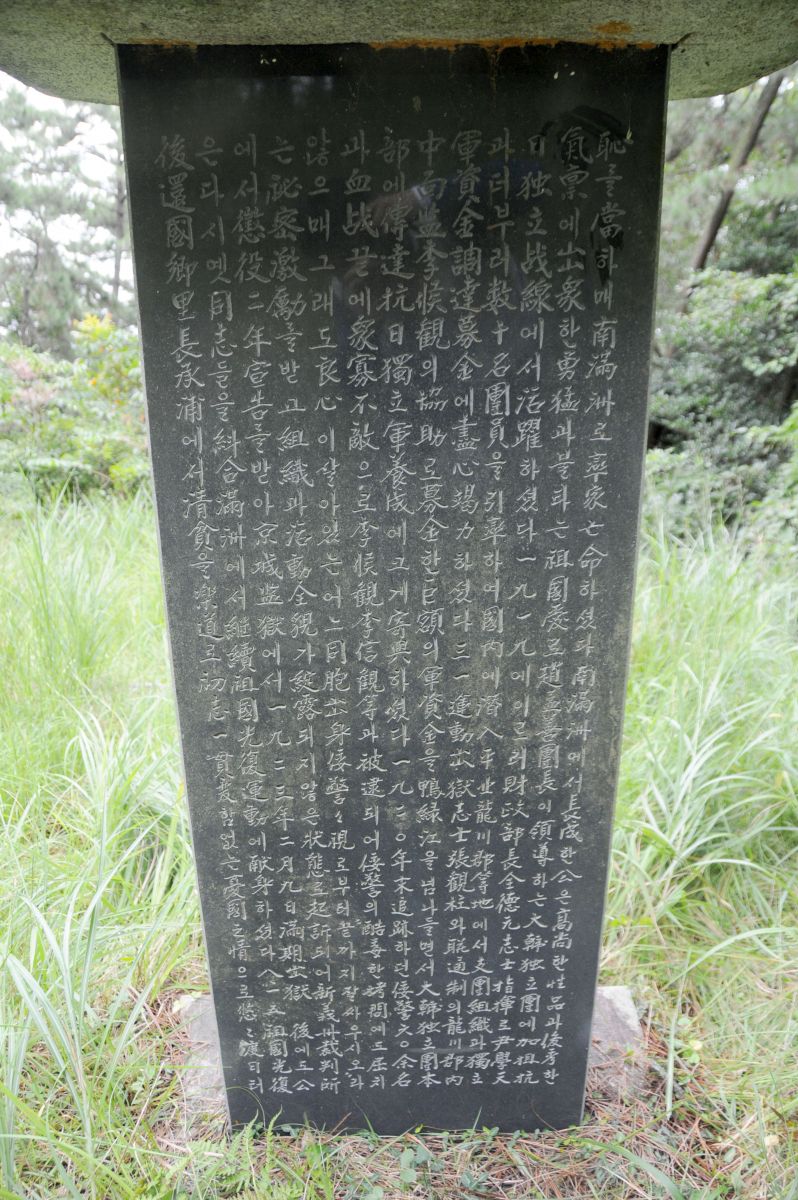 恥를當하매南滿洲로率家亡命하셨다南滿洲에서長成한公은高尙한性品과俊秀한
氣禀에出衆한勇猛과불타는祖國愛로趙孟善團長이領導하는大韓独立團에加担抗
日独立战線에서活躍하셨다一九一九에이르러財政部長全德元志士指揮로尹學天
과더부러数十名團員을引率하여國內에潛入平北龍川郡等地에서支團組織과獨立
軍資金調達募金에盡心竭力하셨다三一運動出獄志士張観柱와联通制의龍川郡內
中面监李候観의協助로募金한巨額의軍資金을鴨綠江을넘나들면서大韓独立團本
部에傳達抗日獨立軍養成에크게寄與하셨다一九二〇年末追跡하던倭警六〇余名
과血战끝에衆寡不敵으로李候観李信観等과被逮되어倭警의酷毒한拷問에도屈치
않으매그래도良心이살아있는어느同胞出身倭警々視로부터끝까지잘싸우시오라
는祕密激勵를받고組織과活動全貌가綻露되지않은狀態로起訴되어新義州裁判所
에서懲役二年宣告를받아京城监獄에서一九二三年二月九日満期出獄後에도公
은다시옛同志들을糾合滿洲에서継續祖國光復運動에献身하셨다八一五祖國光復
後還國鄕里長承浦에서清貧을樂道로初志一貫変함없는憂國之情으로悠々渡日터